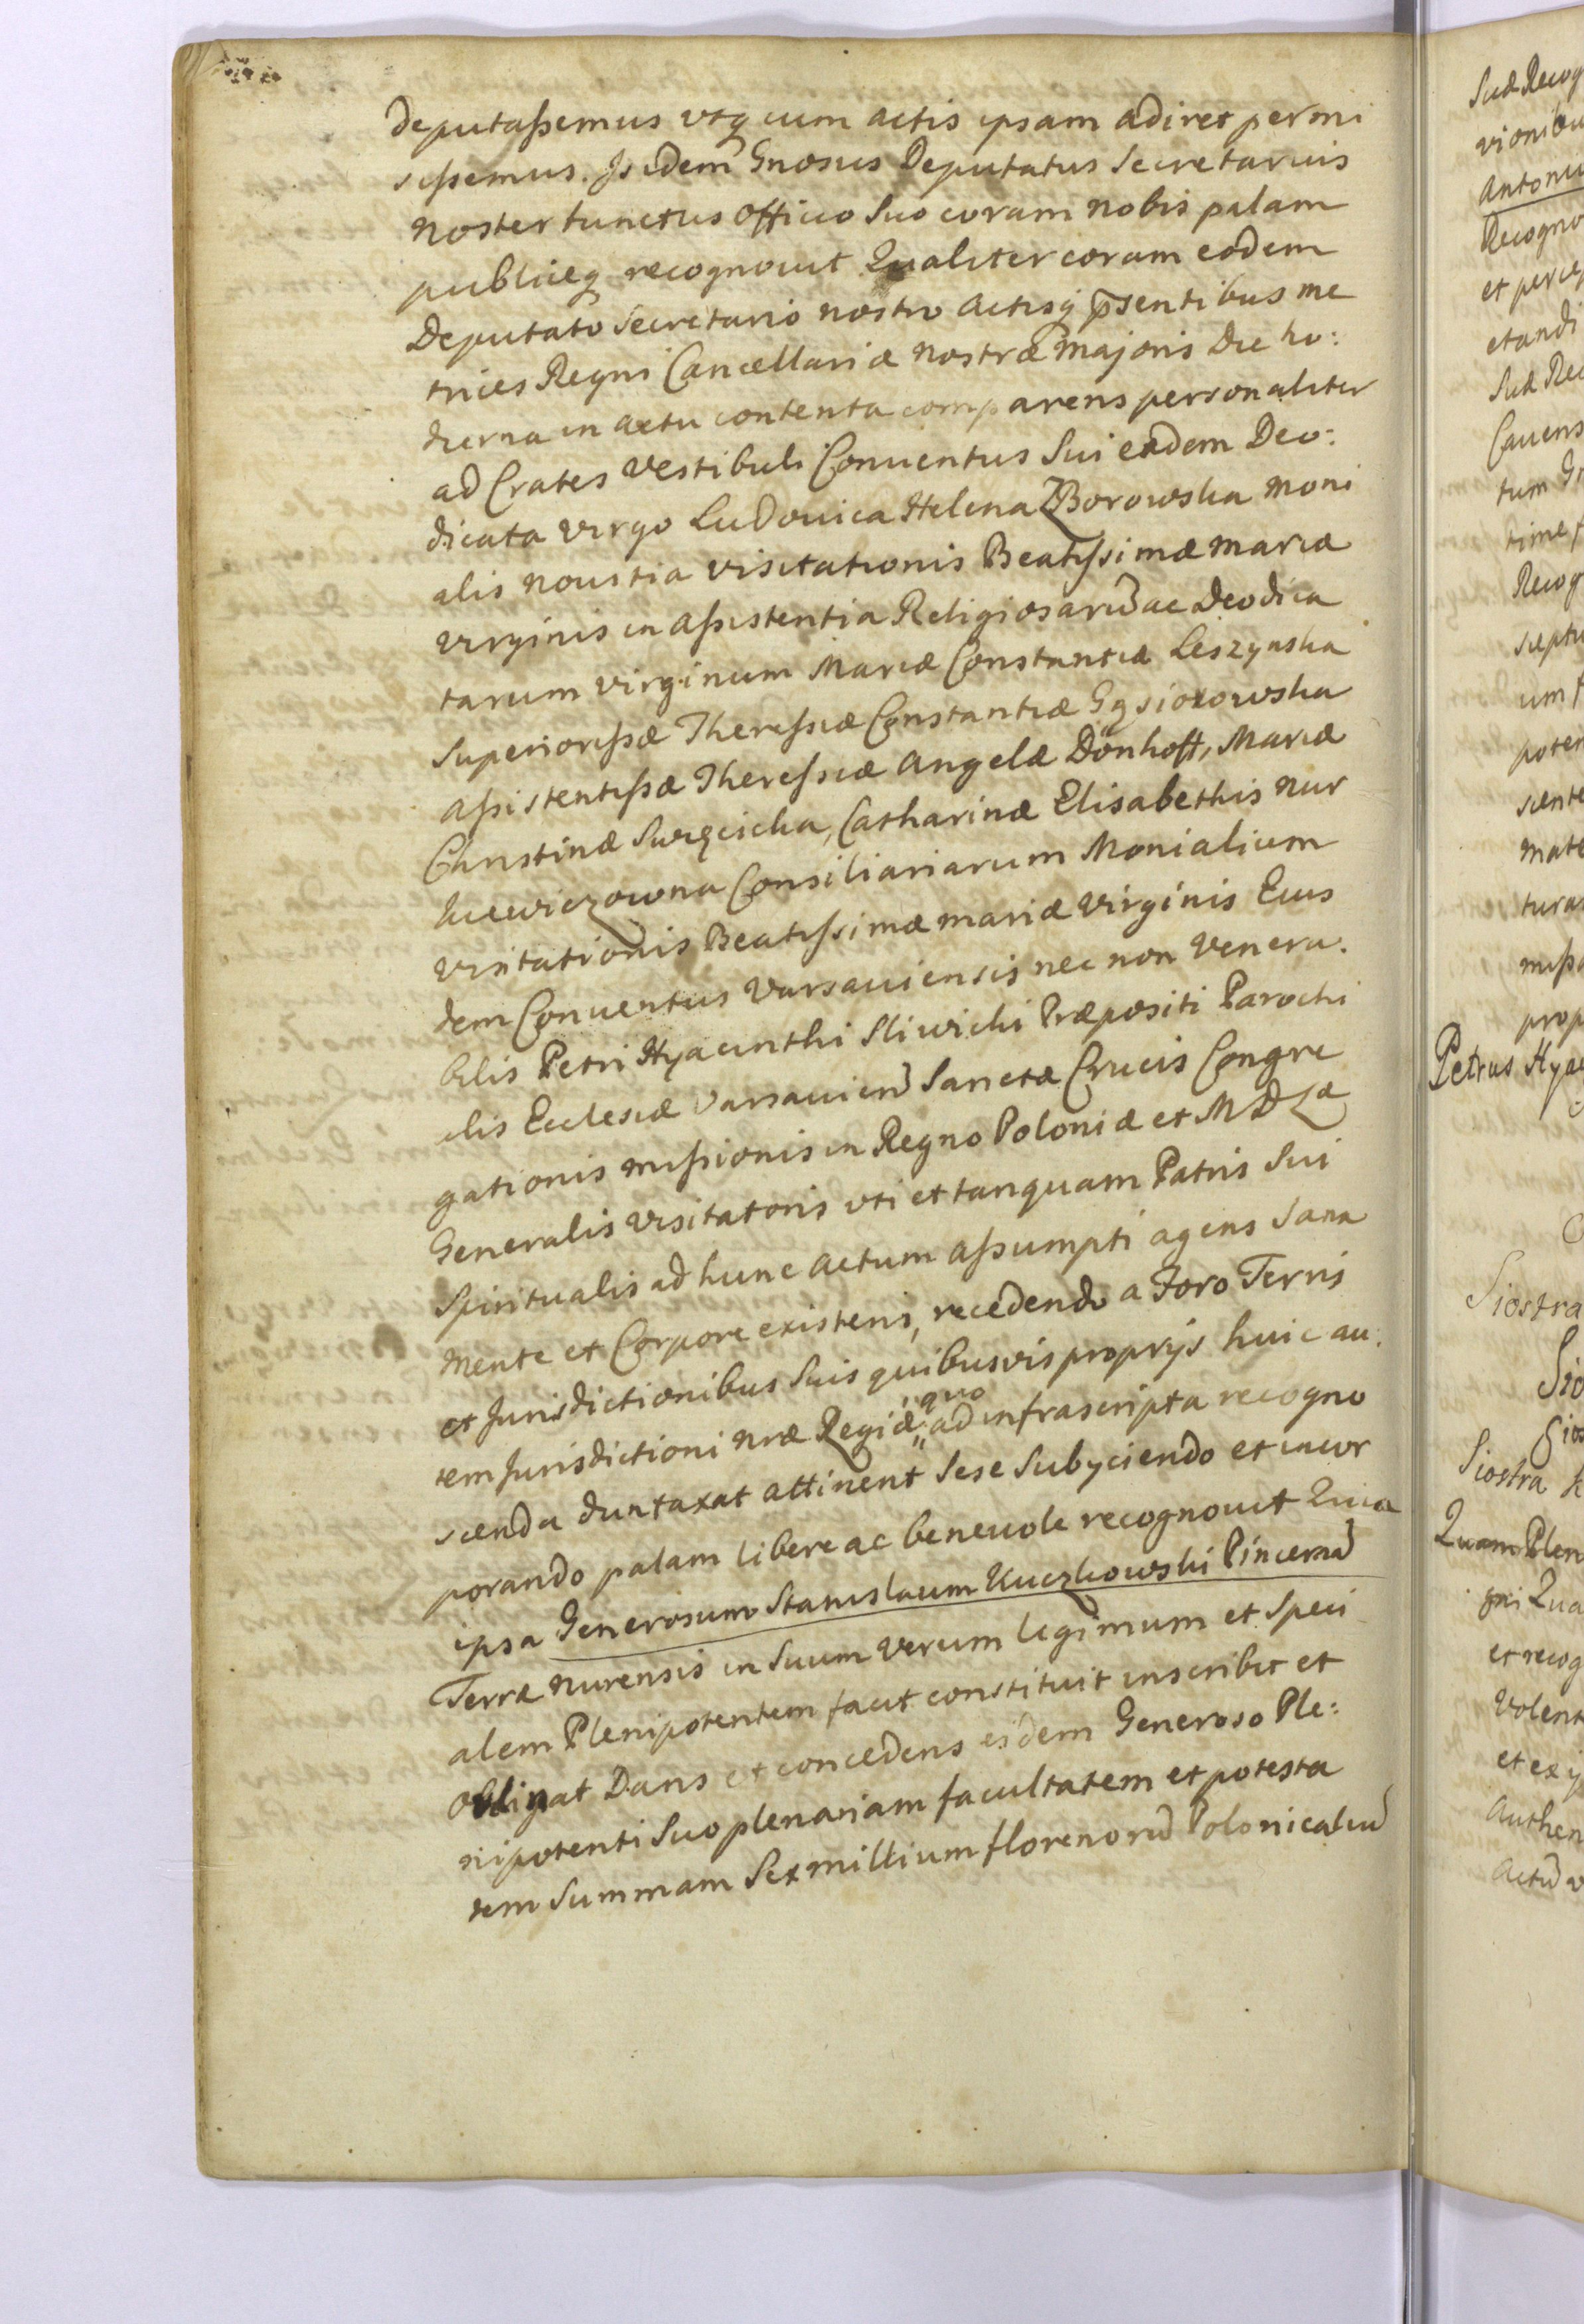 deputaßemus utq cum actis ipsam adiret permi
sißemus. Isidem Gnosus Deputatus Secretarius
noster functus officio suo coram nobis palam
publiceq recognouit Qualiter coram eodem
Deputato Secretario nostro actisq p̄sentibus me
trices Regni Cancellariæ nostræ Majoris Die ho:
dierna in actu contenta comparens personaliter
ad Crates Vestibuli Conuentus Sui eadem Deo:
dicata Virgo Ludouica Helena Zborowska moni
alis nouitia visitationis Beatißimæ Mariæ
Virginis in aßistentia Religiosarū ac Deodica
tarum Virginum Mariæ Constantiæ Leszynska
Superiorißæ Thereßiæ Constantiæ Gąsiorowska
aßistentißæ Thereßiæ Angelæ Dönhoff, Mariæ
Christinæ Suręcicka, Catharinæ Elisabethis Nar
kiewiczowna Consiliariarum Monialium
Visitationis Beatißimæ mariæ Virginis Eius
dem Conuentus Varsauiensis nec non Venera:
bilis Petri Hyacinthi Sliwicki Præpositi Parochi
alis Ecclesiæ Varsauien̄ Sanctæ Crucis Congre
gationis mißionis in Regno Poloniæ et M D Læ
Generalis Visitatoris uti et tanquam Patris Sui
Spiritualis ad hunc actum aßumpti agens Sana
Mente et Corpore existens, recedendo a Foro Terris
et Jurisdictionibus Suis quibusvis proprijs huic au:
tem Jurisdictioni nræ Regiæ " quo ad infrascripta recogno
scenda duntaxat attinent Sese Subyciendo et incor
porando palam libere ac beneuole recognouit Quia
ipsa Generosum Stanislaum Kuczkowski Pincernā
Terræ Nurensis in Suum verum legimum et Speci
alem Plenipotentem facit constituit inscribit et
obligat Dans et concedens eidem Generoso Ple:
nipotenti Suo plenariam facultatem et potesta
tem Summam Sex millium florenorū Polonicaliū
Suæ Recog
vionibu
Antoniu
Recogno
et percep
etandi
Suæ Rec
Cauens
tum
time
Recog
septu
um
poten
scente
mate
turas
mißa
prop
Petrus Hyac
Siostra
Sio
Sios
Siostra
Quam Plen
Qua
et recog
Volent
et exi
Authen
Actū